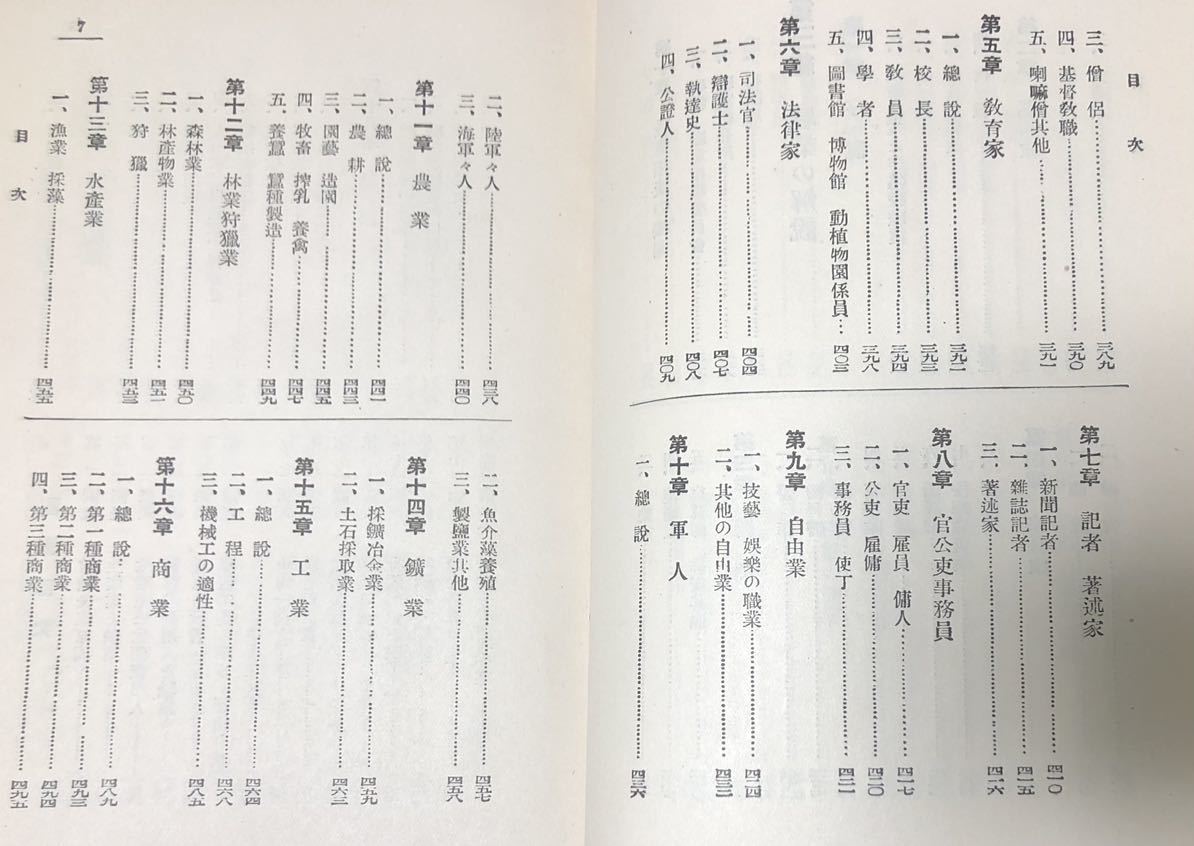 目次
三、僧侶……三八九
四、基督敎職……三九〇
五、喇嘛僧其他……三九一
第五章 敎育家
一、總說……三九二
二、校長……三九三
三、敎員……三九四
四、學者……三九八
五、圖書館 博物館 動植物園係員…四〇三
第六章 法律家
一、司法官……四〇四
二、辯護士……四〇七
三、執達吏……四〇八
四、公證人……四〇九
第七章 記者 著述家
一、新聞記者……四一〇
二、雜誌記者……四一五
三、著述家……四一六
第八章 官公吏事務員
一、官吏 雇員 傭人……四一七
二、公吏 雇傭……四二〇
三、事務員 使丁……四二一
第九章 自由業
一、技藝 娛樂の職業……四二四
二、其他の自由業……四三二
第十章 軍人
一、總說……四三六
二、陸軍々人……四三八
三、海軍々人……四四〇
第十一章 農業
一、總說……四四一
二、農耕……四四三
三、園藝 造園……四四五
四、牧畜 搾乳 養禽……四四七
五、養蠶 蠶種製造……四四九
第十二章 林業狩獵業
一、森林業……四五〇
二、林產物業……四五一
三、狩獵……四五三
第十三章 水產業
一、漁業 採藻……四五五
目次
7
二、魚介藻養殖……四五七
三、製鹽業其他……四五八
第十四章 鑛業
一、採鑛冶金業……四五九
二、土石採取業……四六三
第十五章 工業
一、總說……四六四
二、工程……四六八
三、機械工の適性……四八五
第十六章 商業
一、總說……四八九
二、第一種商業……四九三
三、第二種商業……四九四
四、第三種商業……四九五